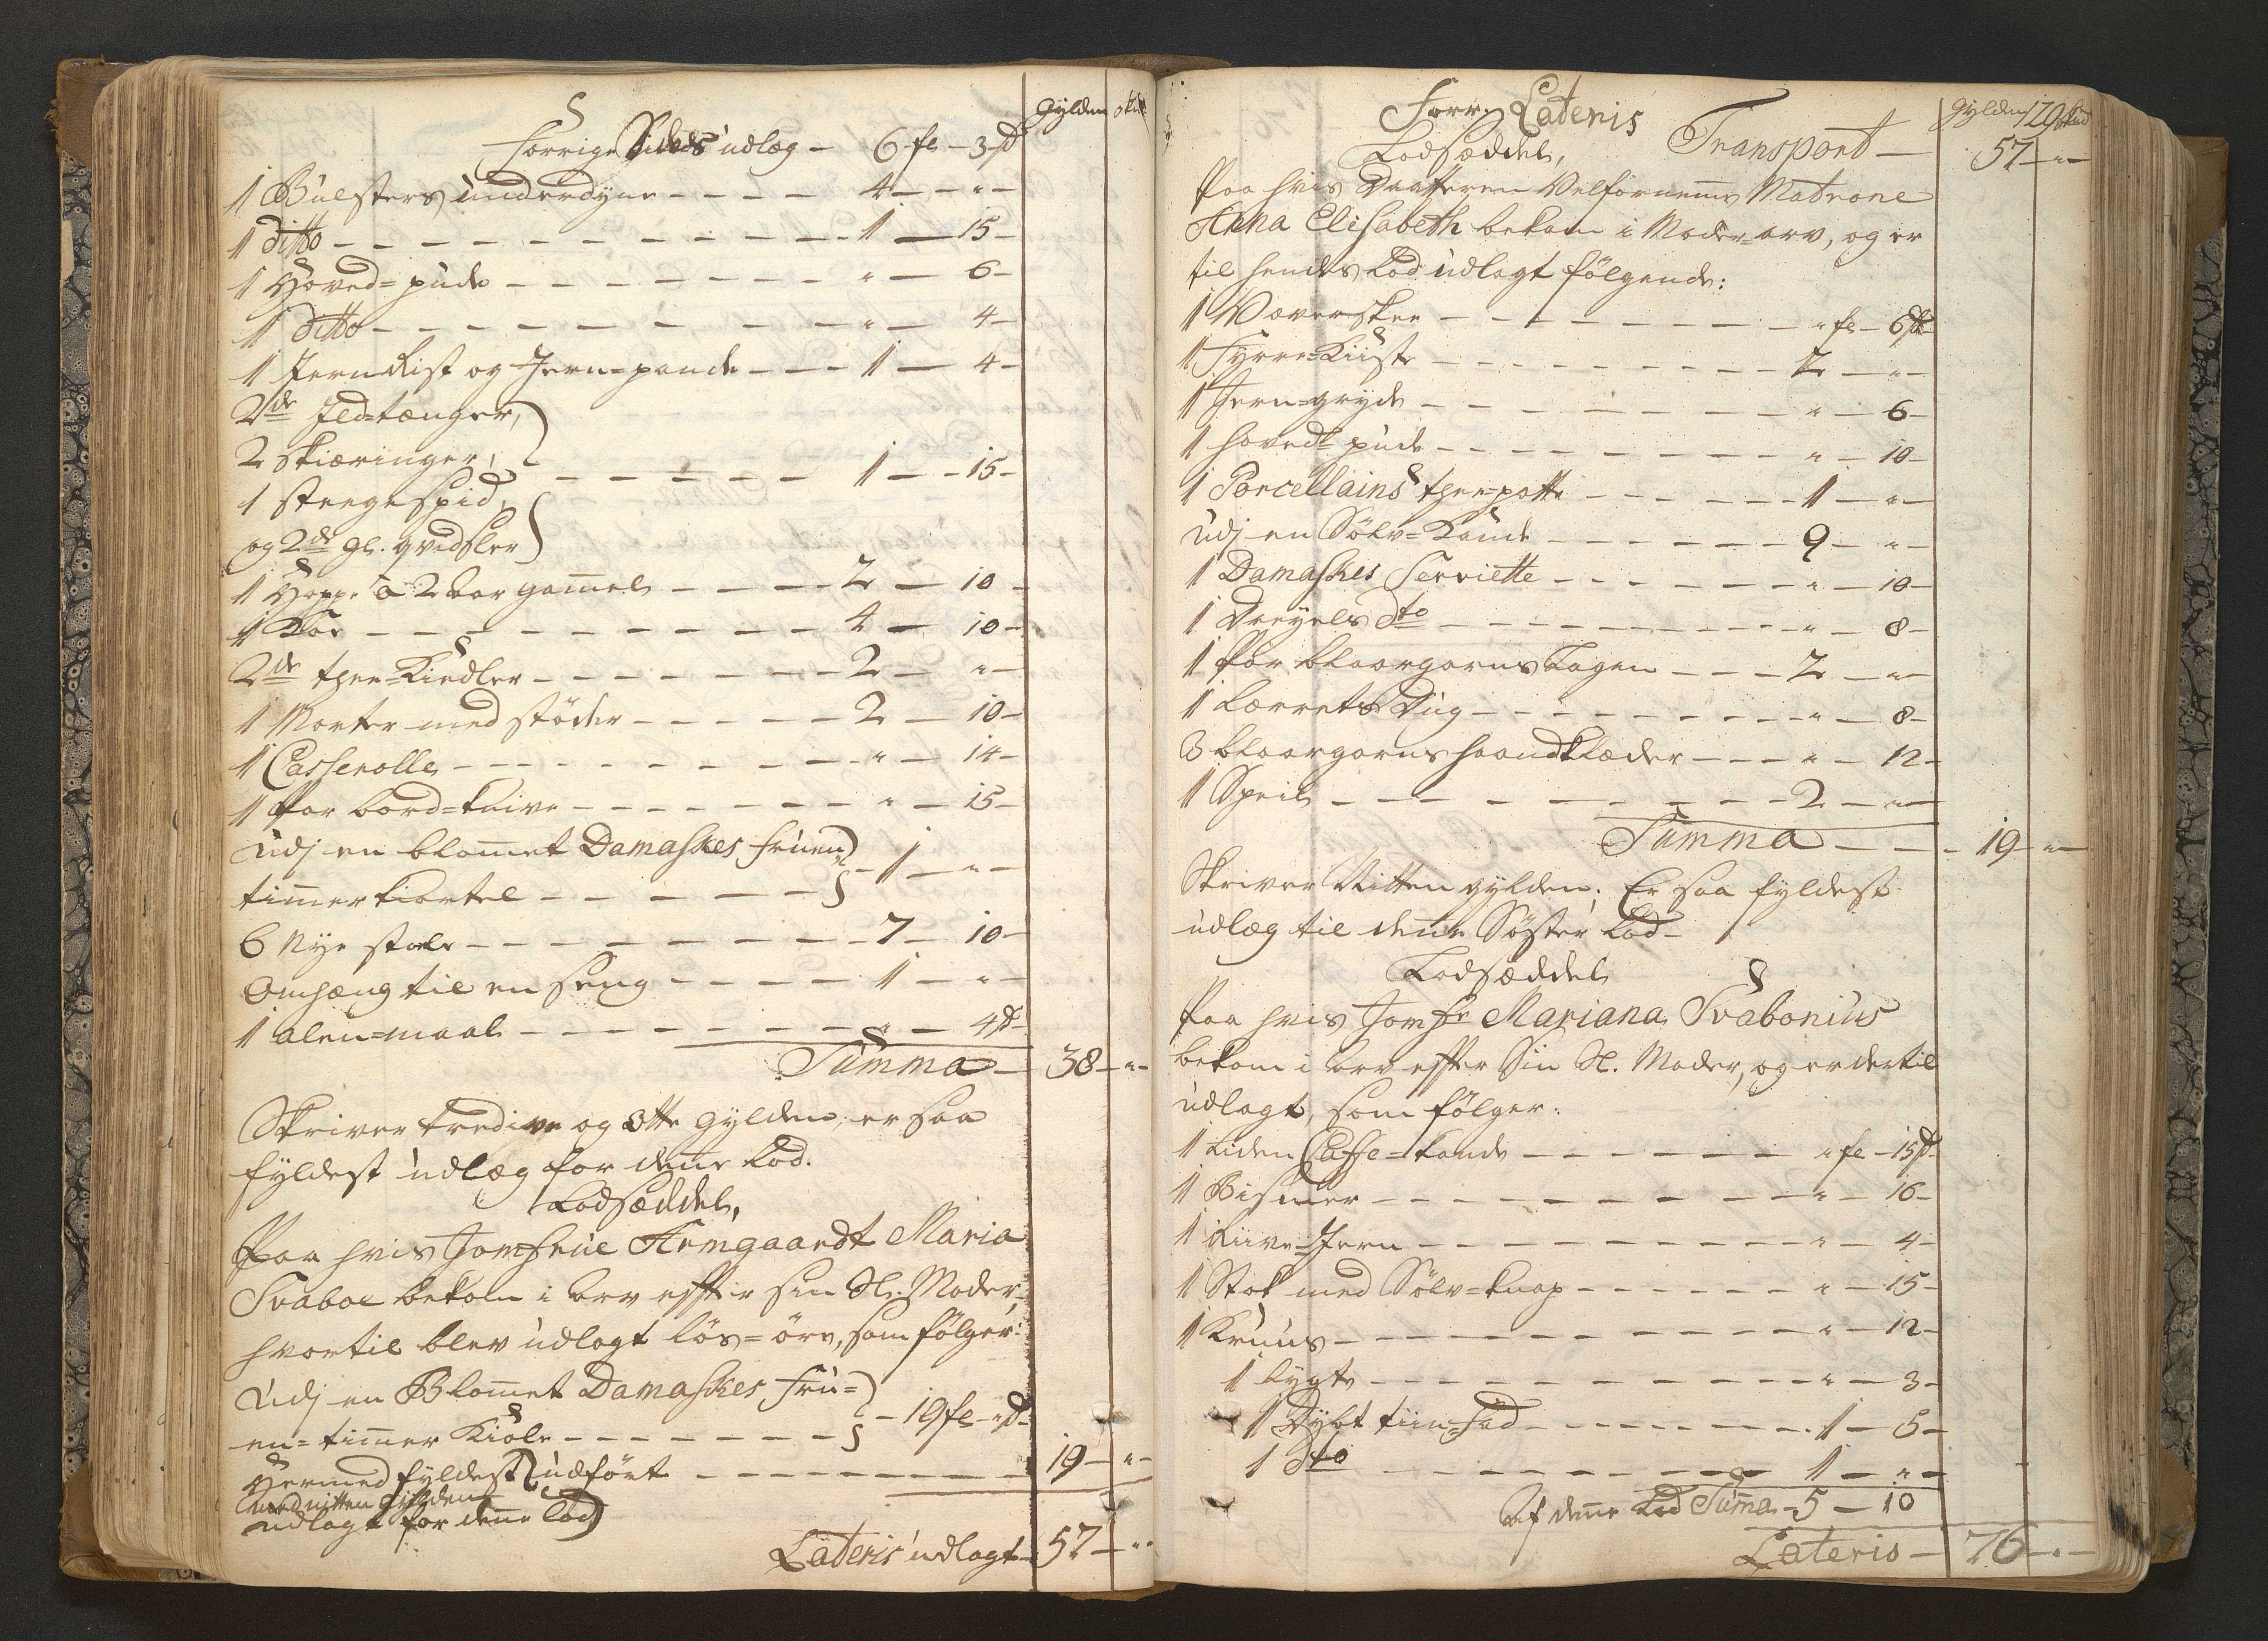 Gylden skill
Forrige Sides udlæg – 6 fl – 3 ß
1 Bulsters underdyne – – – – 4 – " –
1 ditto – – – – – – – – – – – 1 – 15 –
1 Hoved=pude – – – – – – – " – 6 –
1 ditto – – – – – – – – – – " – 4 –
1 Jern Rist og Jern=pande – – – 1 – 4 –
2de Ild=tænger,
2 skiæringer,
1 steege spid, – – – – – – – 1 – 15 –
og 2de gl. qvidsler
1 Hoppe à 2 Aar gammel – – – – 2 – 10 –
1 Koe – – – – – – – – – – 4 – 10 –
2de thee=Kiedler – – – – – – – 2 – " –
1 Morter med støder – – – – – 2 – 10 –
1 Casserolle – – – – – – – – – " – 14 –
1 Par bord=knive – – – – – – – " – 15 –
Udj en blommet Damaskes Fruen
timmer kiortel – – – – – – 1 – " –
6 Nye stoele – – – – – – – – – 7 – 10 –
Omhæng til en seng – – – – 1 – " –
1 alen=maal – – – – – – – – " – 4 ß –
Summa – 38 – " –
Skriver tredive og otte gylden, er saa
fyldest udlæg for denne Lod.
Lodseddel,
Paa hvis Jomfrue Armgaardt Maria
Svaboe bekom i Arv efter sin Sl. Moder,
hvortil blev udlagt løs=øre, som følger:
Udj en Blommet Damaskes Fru=
en=timmer Kiole – – – – – – – 19 fl – " ß –
Hermed fyldest udført – – – – – – – – – 19 – " –
med nitten gylden
udlagt for denne Lod
Lateris udlagt – 57 – " –
Forr. Lateris
Gylden 129 skill
Lodseddel, Transport – 57 – " –
Paa hvis Datteren Velfornemme Matrone
Anna Elisabeth bekom i Moder=arv, og er
til hendes Lod udlagt følgende:
1 Væverskee – – – – – – – – " fl – 6 ß
1 Fyrre=Kiiste – – – – – – – – 2 – " –
1 Jern=gryde – – – – – – – – " – 6 –
1 hoved=pude – – – – – – – – " – 10 –
1 Porcellains thee=potte – – – – – – 1 – " –
Udj en Sølv=Kande – – – – – – 9 – " –
1 Damaskes Serviette – – – – – – " – 10 –
1 Dreyels dto – – – – – – – – – " – 8 –
1 Par blaargarns Lagen – – – 2 – " –
1 Lærrets Dug – – – – – – – – – " – 8 –
3 blaargarns haandklæder – – – " – 12 –
1 Speil – – – – – – – – – 2 – " –
Summa – – – 19 – " –
Skriver Nitten gylden; Er saa fyldest
udlæg til denne Søster Lod –
Lodseddel
Paa hvis Jomfr Mariana Svabonius
bekom i arv efter Sin Sl. Moder, og er dertil
udlagt, som følger:
1 Liden Caffe=kande – – – – – – " fl – 15 ß –
1 Bismer – – – – – – – – – " – 16 –
1 Riive=Jern – – – – – – – – – " – 4 –
1 Stok med Sølv=knap – – – – – – " – 15 –
1 Kruus – – – – – – – – – – " – 12 –
1 lygte – – – – – – – – – – " – 3 –
1 Dybt tiin=Fad – – – – – – – 1 – 5 –
1 dto – – – – – – – – – – 1 – " –
Af denne Lod Suma – 5 – 10
Lateris – 76 – " –